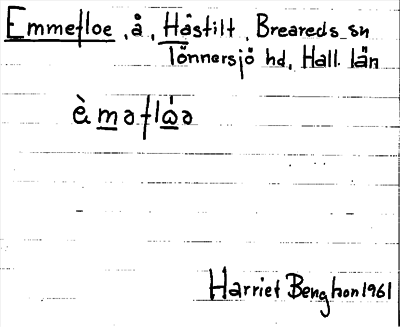 Emmefloe, å, Håstilt, Breareds sn
Tönnersjö hd, Hall. län
è m ə f l ó̤ ə
Harriet Bengtson 1961